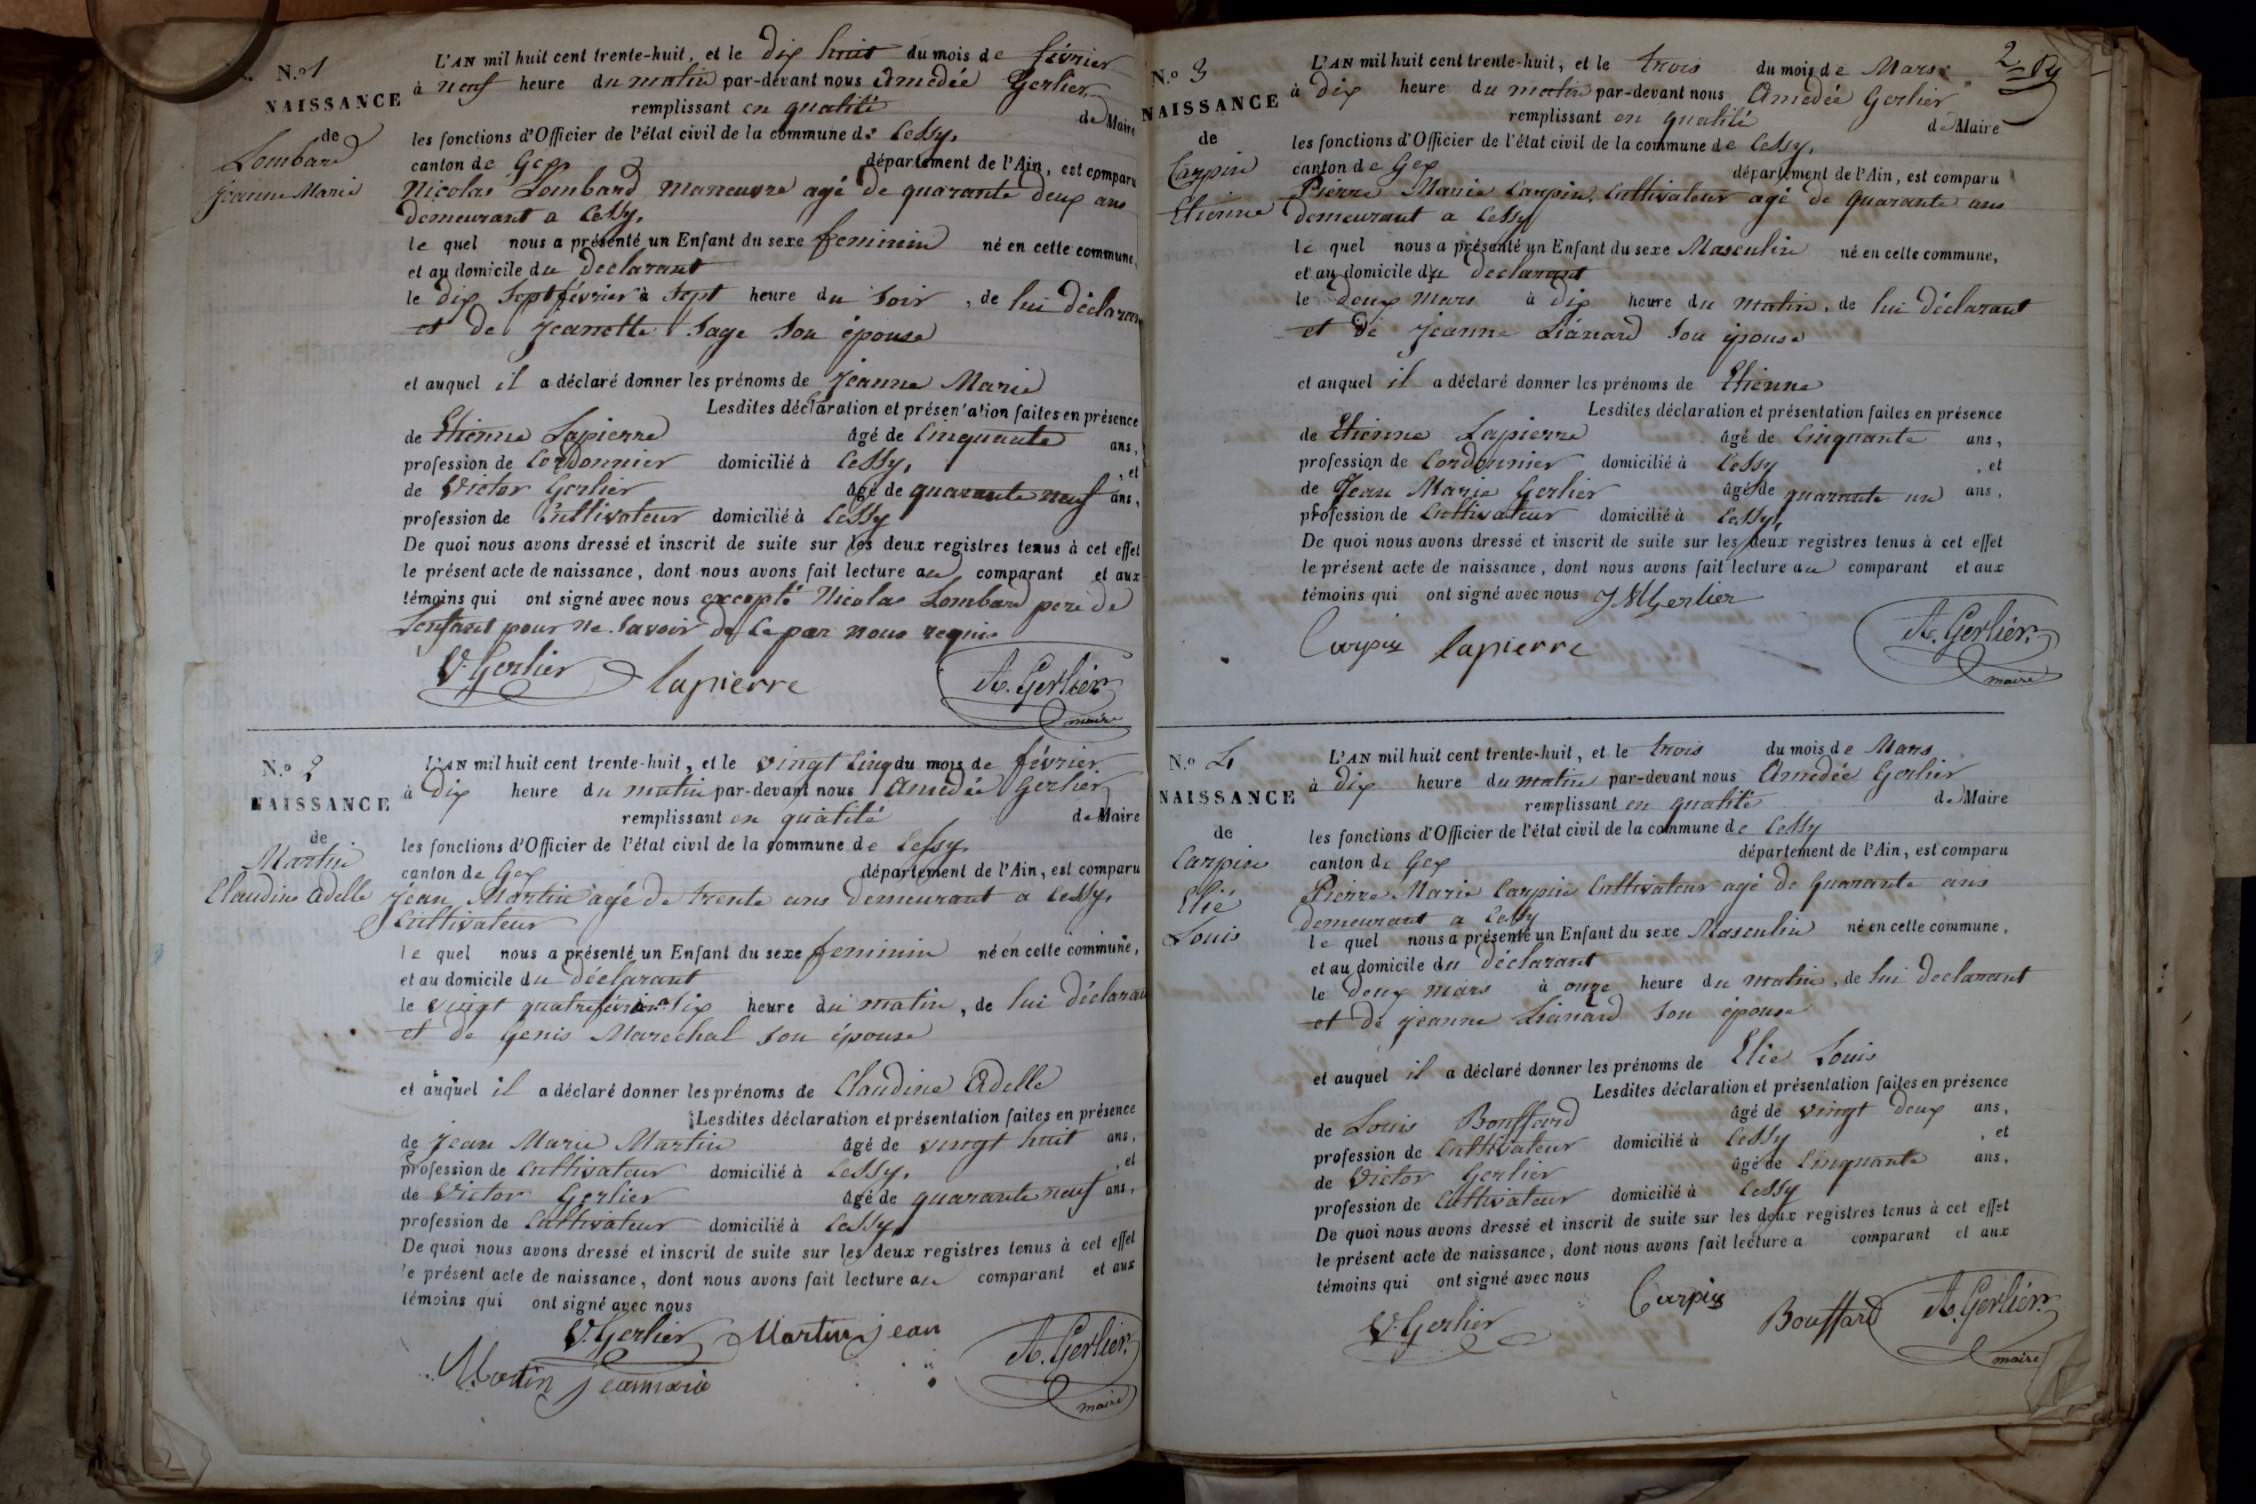 N.o 1
NAISSANCE
de
Lombard
Jeanne Marie
L'AN mil huit cent trente-huit, et le dix huit du mois de février
à neuf heure du matin par-devant nous Amedée Gerlier
remplissant en qualité de Maire
les fonctions d'Officier de l'état civil de la commune de Cessy,
canton de Gex département de l'Ain, est comparu
Nicolas Lombard maneuvre agé de quarante deux ans
demeurant a Cessy,
le quel nous a présenté un Enfant du sexe feminin né en cette commune,
et au domicile du declarant
le dix sept février à sept heure du soir, de lui déclarant
et de Jeanette Sage son épouse
et auquel il a déclaré donner les prénoms de Jeanne Marie
Lesdites déclaration et présentation faites en présence
de Etienne Lapierre âgé de Cinquante ans,
profession de Cordonnier domicilié à Cessy, , et
de Victor Gerlier âgé de quarante neuf ans,
profession de Cultivateur domicilié à Cessy
De quoi nous avons dressé et inscrit de suite sur les deux registres tenus à cet effet
le présent acte de naissance, dont nous avons fait lecture au comparant et aux
témoins qui ont signé avec nous excepté Nicolas Lombard pere de
l'enfant pour ne savoir de ce par nous requis
V. Gerlier lapierre A. Gerlier
maire
N.o 2
NAISSANCE
de
Martin
Claudine Adelle
L'AN mil huit cent trente-huit, et le vingt cinq du mois de février
à dix heure du matin par-devant nous Amedée Gerlier
remplissant en qualité de Maire
les fonctions d'Officier de l'état civil de la commune de Cessy,
canton de Gex département de l'Ain, est comparu
Jean Martin agé de trente ans demeurant a Cessy,
Cultivateur
le quel nous a présenté un Enfant du sexe feminin né en cette commune,
et au domicile du déclarant
le vingt quatre février à dix heure du matin, de lui déclarant
et de Genis Marechal son épouse
et auquel il a déclaré donner les prénoms de Claudine Adelle
Lesdites déclaration et présentation faites en présence
de Jean Marie Martin âgé de vingt huit ans,
profession de Cultivateur domicilié à Cessy, , et
de Victor Gerlier âgé de quarante neuf ans,
profession de Cultivateur domicilié à Cessy
De quoi nous avons dressé et inscrit de suite sur les deux registres tenus à cet effet
le présent acte de naissance, dont nous avons fait lecture au comparant et aux
témoins qui ont signé avec nous
V. Gerlier Martin jean A. Gerlier
Martin jeanmarie maire
2
N.o 3
NAISSANCE
de
Carpin
Etienne
L'AN mil huit cent trente-huit, et le trois du mois de Mars
à dix heure du matin par-devant nous Amedée Gerlier
remplissant en qualité de Maire
les fonctions d'Officier de l'état civil de la commune de Cessy,
canton de Gex département de l'Ain, est comparu
Pierre Marie Carpin, Cultivateur agé de quarante ans
demeurant a Cessy
le quel nous a présenté un Enfant du sexe Masculin né en cette commune,
et au domicile du declarant
le deux mars à dix heure du matin, de lui déclarant
et de Jeanne Liánard son épouse
et auquel il a déclaré donner les prénoms de Etienne
Lesdites déclaration et présentation faites en présence
de Etienne Lapierre âgé de Cinquante ans,
profession de Cordonnier domicilié à Cessy , et
de Jean Marie Gerlier âgé de quarante un ans,
profession de Cultivateur domicilié à Cessy,
De quoi nous avons dressé et inscrit de suite sur les deux registres tenus à cet effet
le présent acte de naissance, dont nous avons fait lecture au comparant et aux
témoins qui ont signé avec nous J M Gerlier
Carpin lapierre A. Gerlier
maire
N.o 4
NAISSANCE
de
Carpin
Elie
Louis
L'AN mil huit cent trente-huit, et le trois du mois de Mars
à dix heure du matin par-devant nous Amedée Gerlier
remplissant en qualité de Maire
les fonctions d'Officier de l'état civil de la commune de Cessy
canton de Gex département de l'Ain, est comparu
Pierre Marie Carpin Cultivateur agé de quarante ans
demeurant a Cessy
le quel nous a présenté un Enfant du sexe Masculin né en cette commune,
et au domicile du déclarant
le deux mars à onze heure du matin, de lui declarant
et de jeanne Liánard son épouse
et auquel il a déclaré donner les prénoms de Elie Louis
Lesdites déclaration et présentation faites en présence
de Louis Bouffard âgé de vingt deux ans,
profession de Cultivateur domicilié à Cessy , et
de Victor Gerlier âgé de Cinquante ans,
profession de Cultivateur domicilié à Cessy
De quoi nous avons dressé et inscrit de suite sur les deux registres tenus à cet effet
le présent acte de naissance, dont nous avons fait lecture a comparant et aux
témoins qui ont signé avec nous
V. Gerlier Carpin Bouffard A. Gerlier
maire